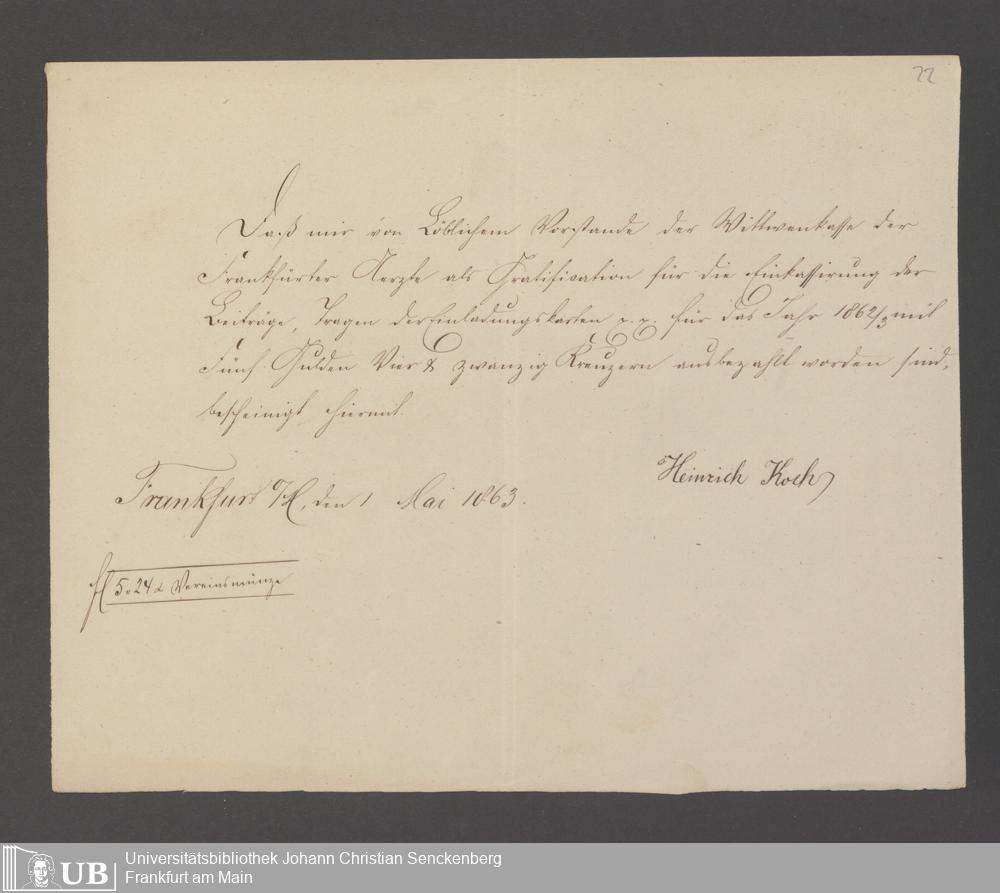 22
Daß mir von Löblichem Vorstande der Wittwenkasse der
Frankfurter Aerzte als Gratification für die Einkassirung der
Beiträge, Tragen der Einladungskarten p. p. für das Jahr 1862/3 mit
Fünf Gulden Vier & zwanzig Kreuzern ausbezahlt worden sind,
bescheinigt hiermit.
Heinrich Koch
Frankfurt a/M, den 1 Mai 1863.
fl 5 „ 24 x Vereinsmünze
UB
Universitätsbibliothek Johann Christian Senckenberg
Frankfurt am Main